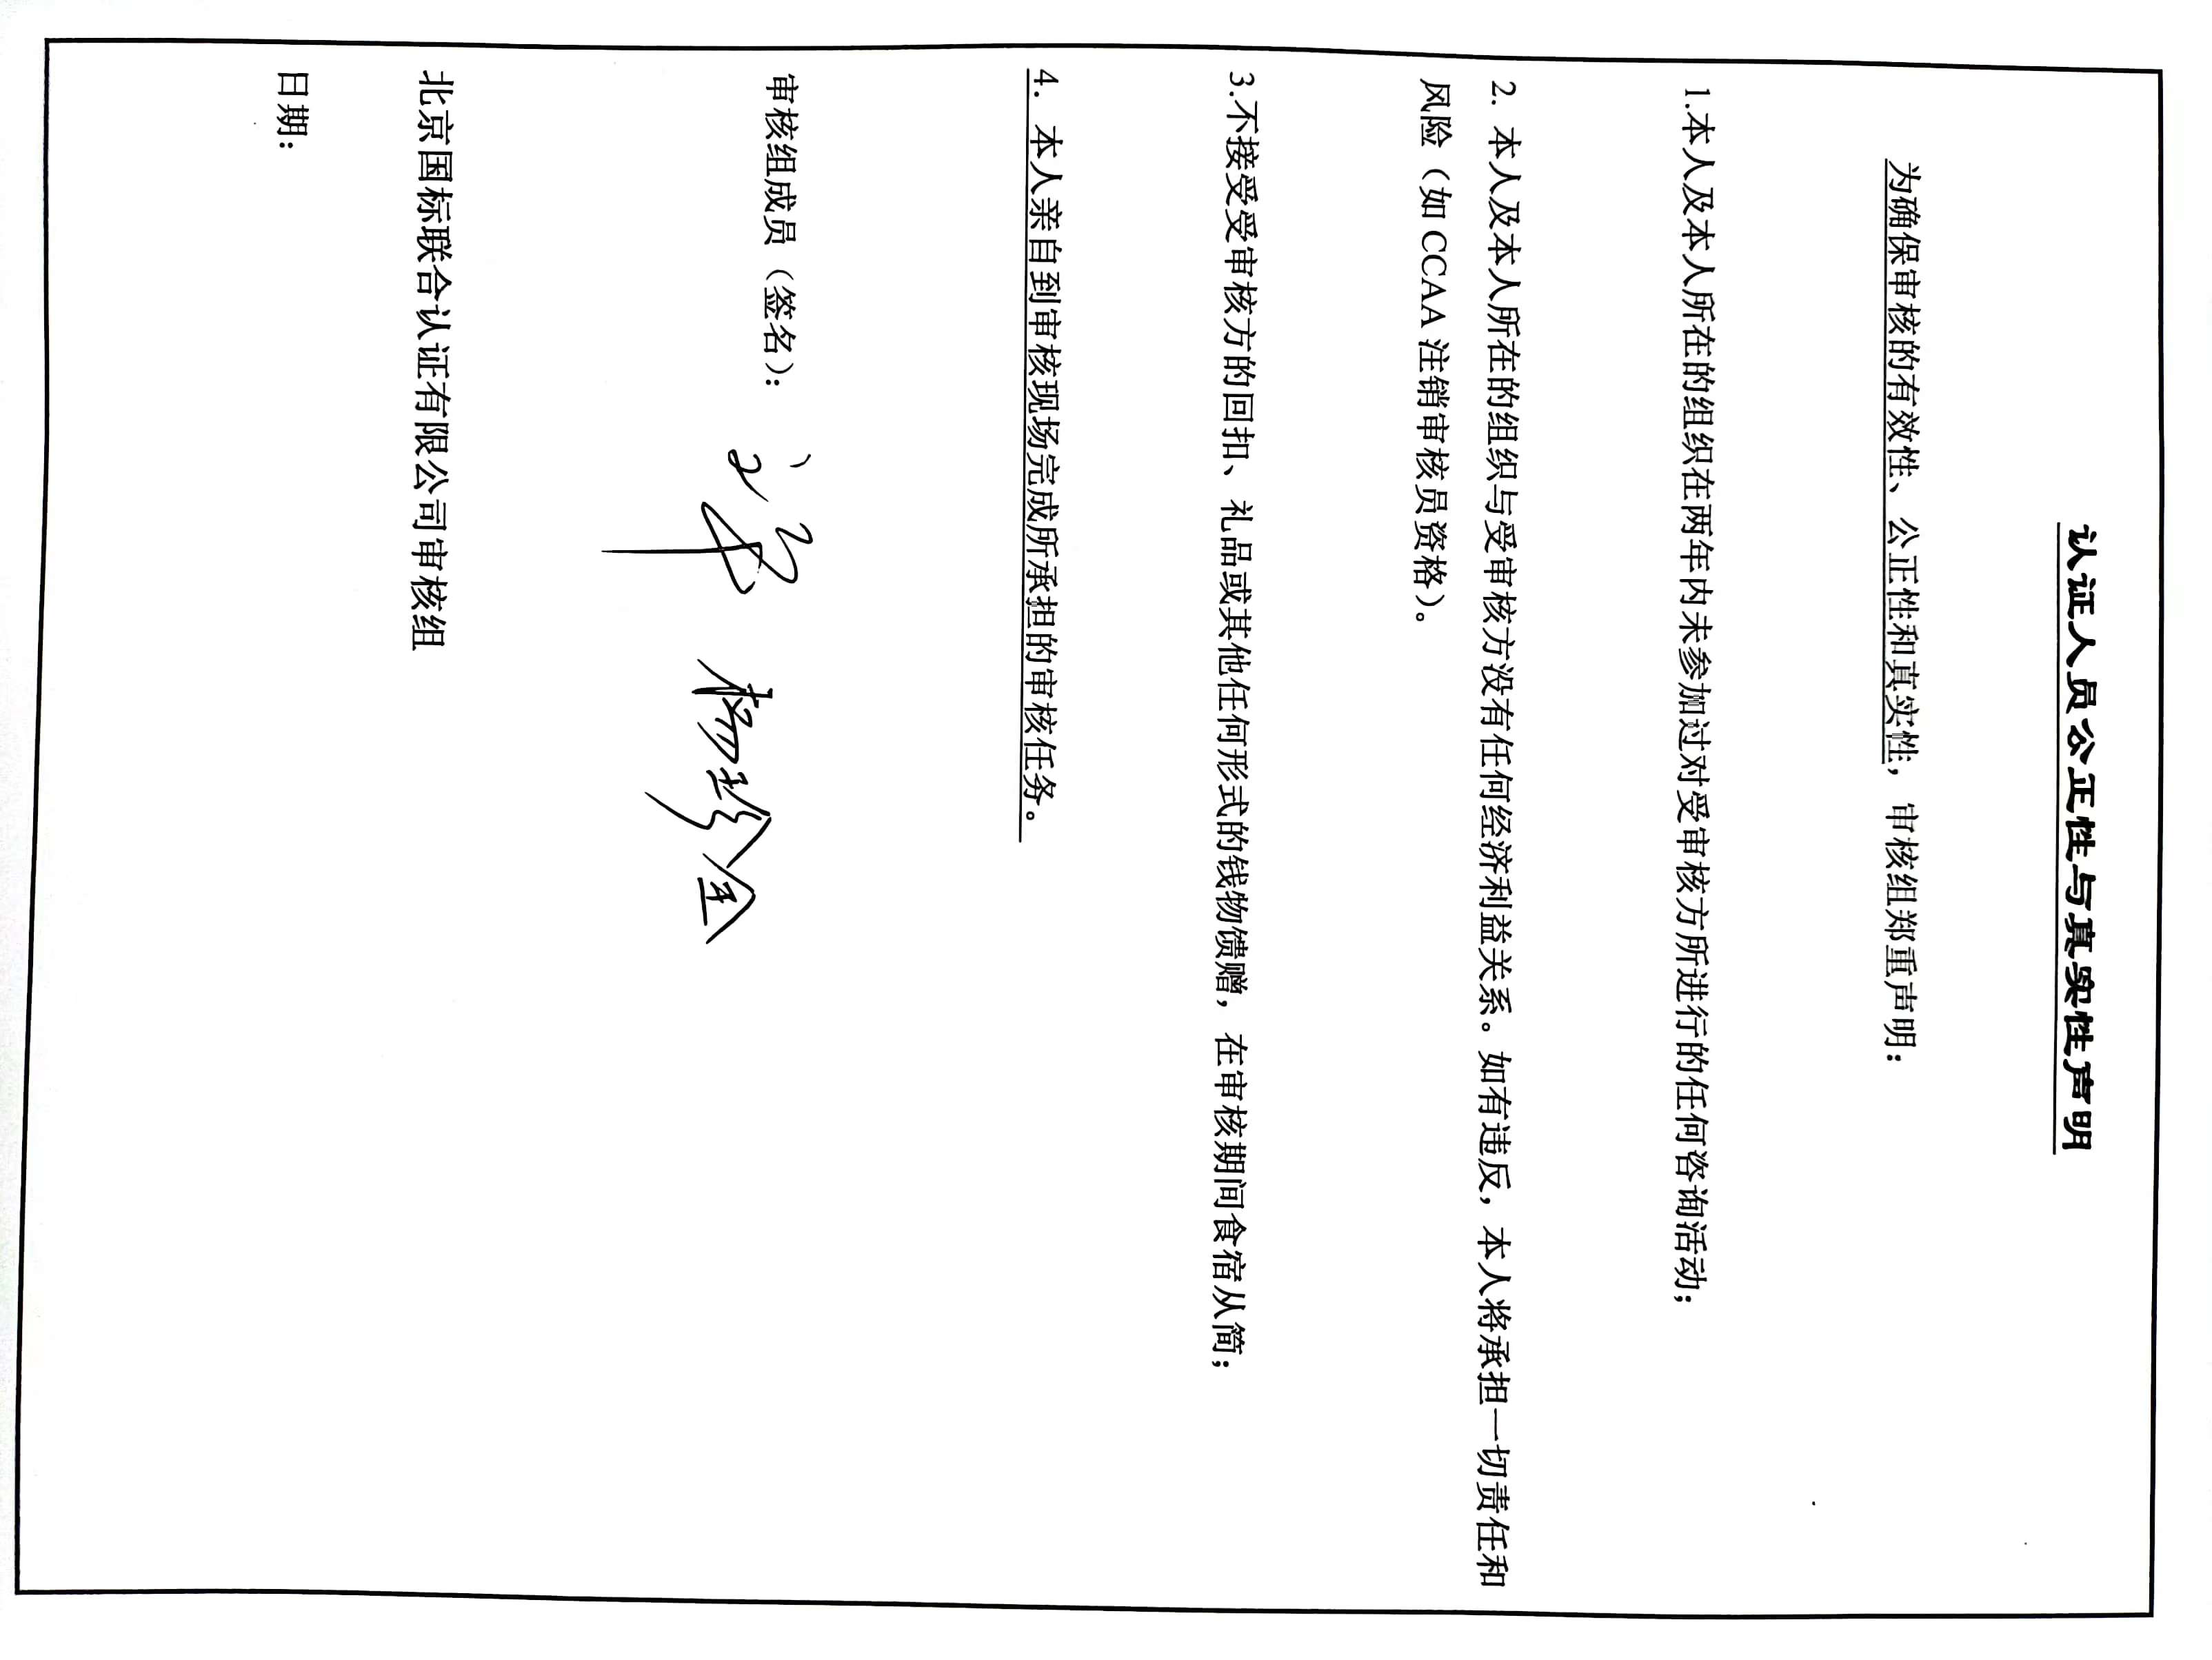 认证人员公正性与真实性声明
为确保审核的有效性、公正性和真实性，审核组郑重声明：
1.本人及本人所在的组织在两年内未参加过对受审核方所进行的任何咨询活动；
2. 本人及本人所在的组织与受审核方没有任何经济利益关系。如有违反，本人将承担一切责任和
风险（如 CCAA 注销审核员资格）。
3.不接受受审核方的回扣、礼品或其他任何形式的钱物馈赠，在审核期间食宿从简；
4. 本人亲自到审核现场完成所承担的审核任务。
审核组成员（签名）：
北京国标联合认证有限公司审核组
日期：